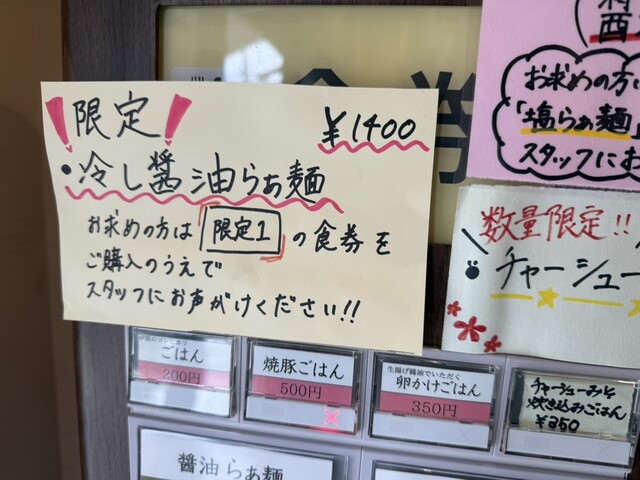 限定
¥1400
・冷し醤油らぁ麺
お求めの方は 限定1 の食券を
ご購入のうえで
スタッフにお声がけください!!
お求めの方に
「塩らぁ麺」
スタッフにお
数量限定!!
チャーシュー
ごはん
200円
焼豚ごはん
500円
生揚げ醤油でいただく
卵かけごはん
350円
チャーシューみそ
炊き込みごはん
¥350
醤油らぁ麺